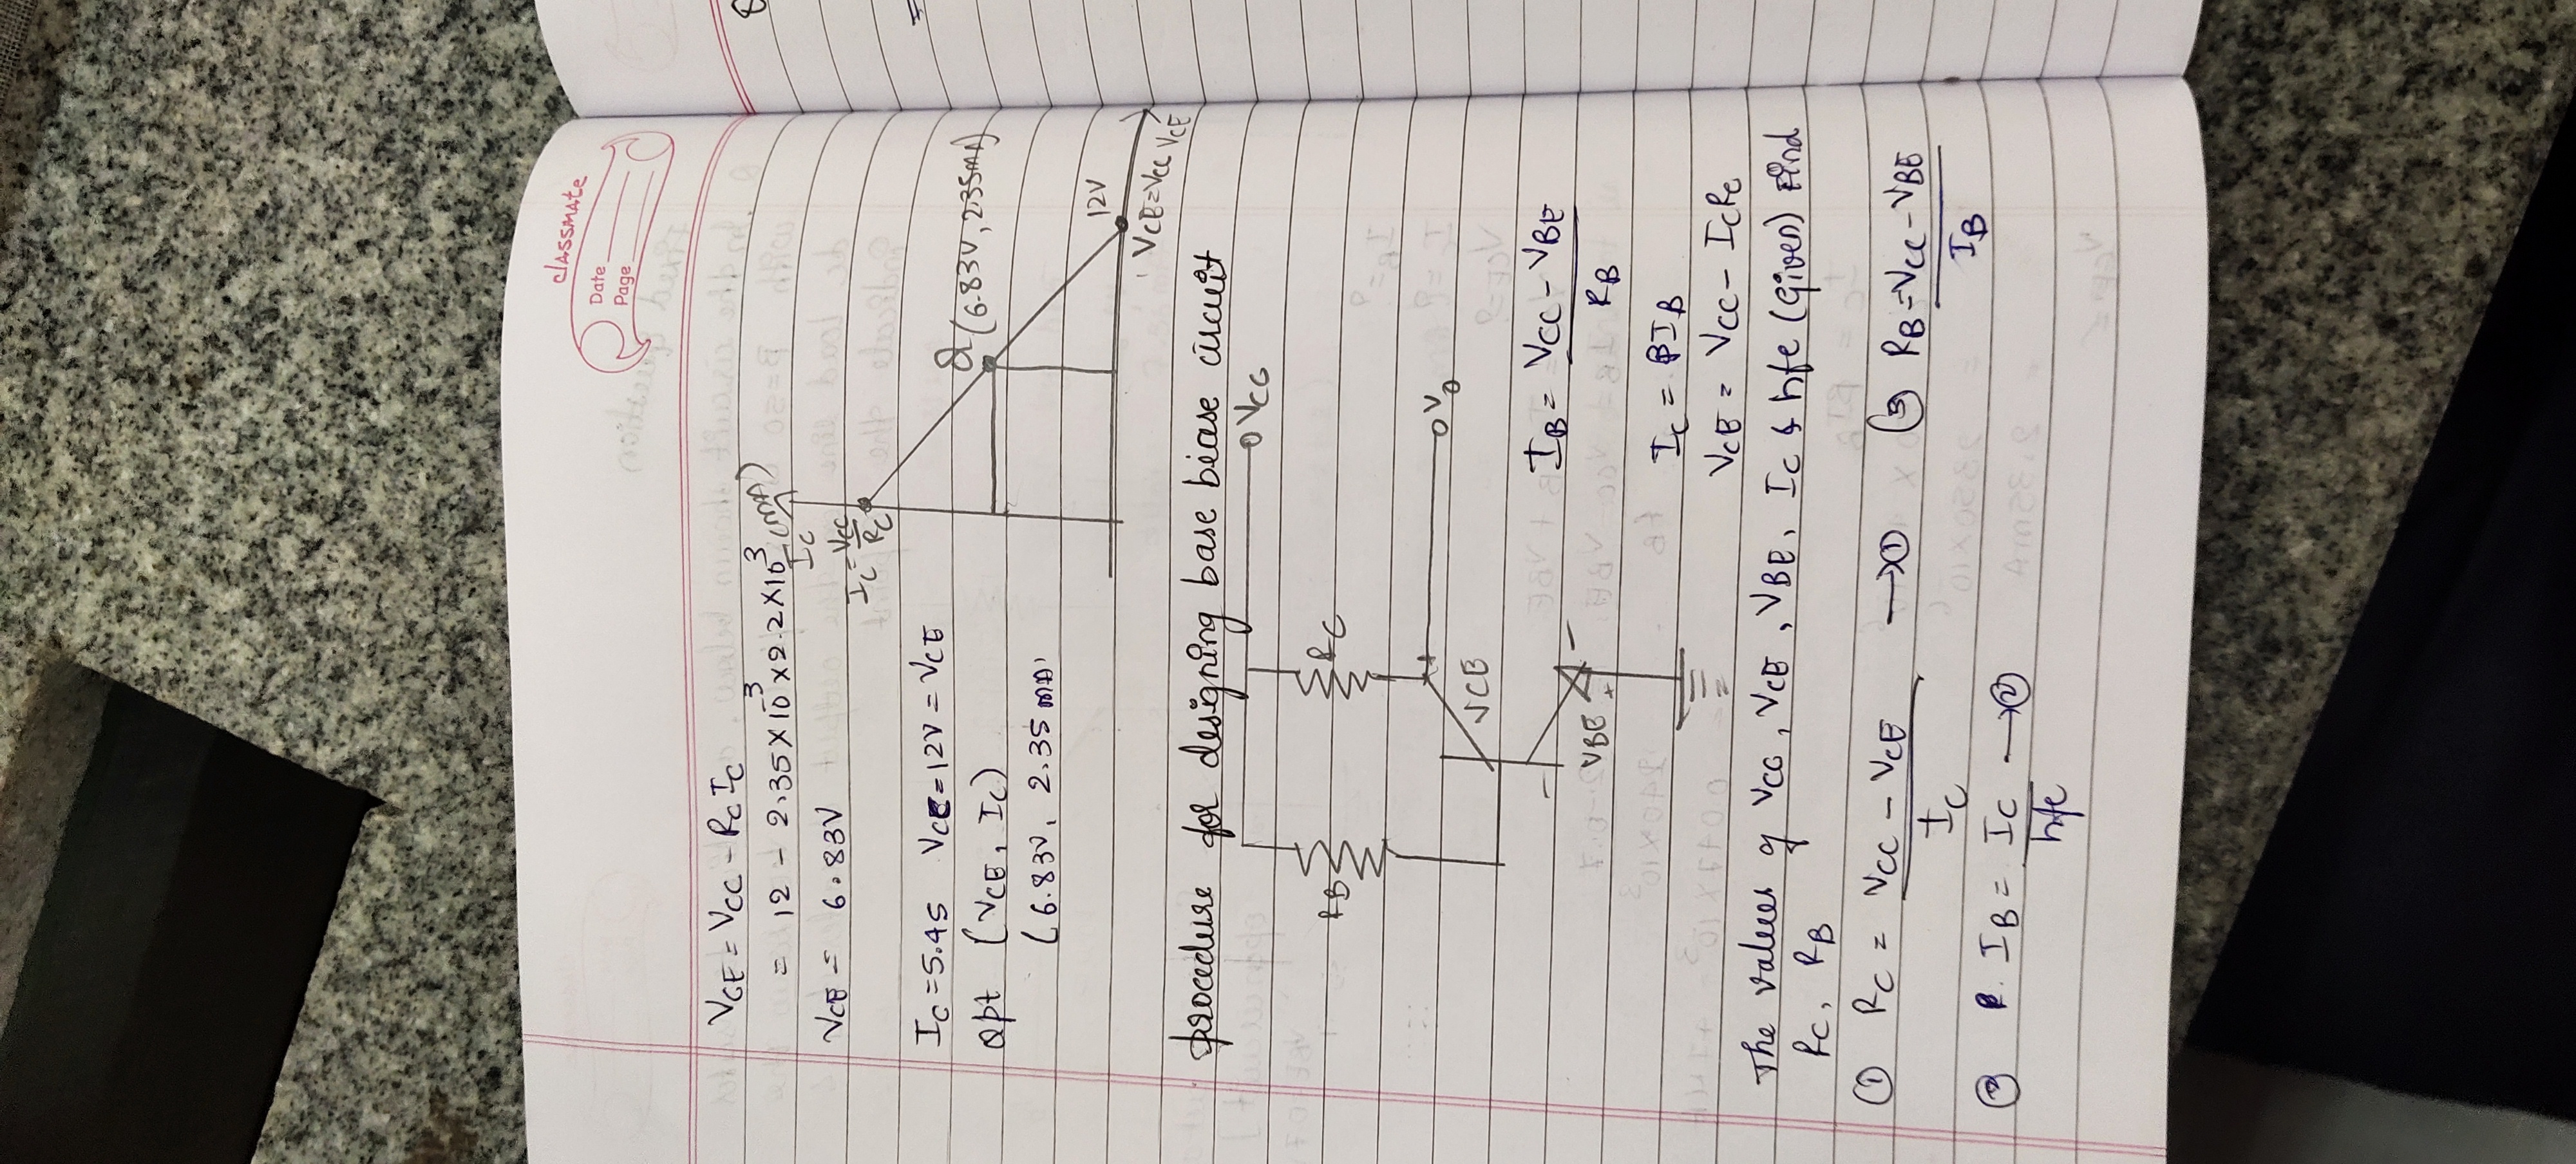 classmate
Date
Page
VCE = VCC - RC IC
= 12 - 2.35×10⁻³×2.2×10³
VCE = 6.83V
IC (mA)
IC = VCC/RC
IC = 5.45 VCE = 12V = VCE
Qpt (VCE, IC)
(6.83V, 2.35 mA)
Q (6.83V, 2.35mA)
12V
VCE = VCC VCE
procedure for designing base biase circuit
VCC
RB
RC
+
Vo
VCE
-
VBE
-
+
IB = VCC - VBE / RB
IC = βIB
VCE = VCC - ICRC
The values of VCC, VCE, VBE, IC & hfe (given) Find
RC, RB
① RC = VCC - VCE / IC → ①
③ RB = VCC - VBE / IB
② IB = IC / hfe → ②